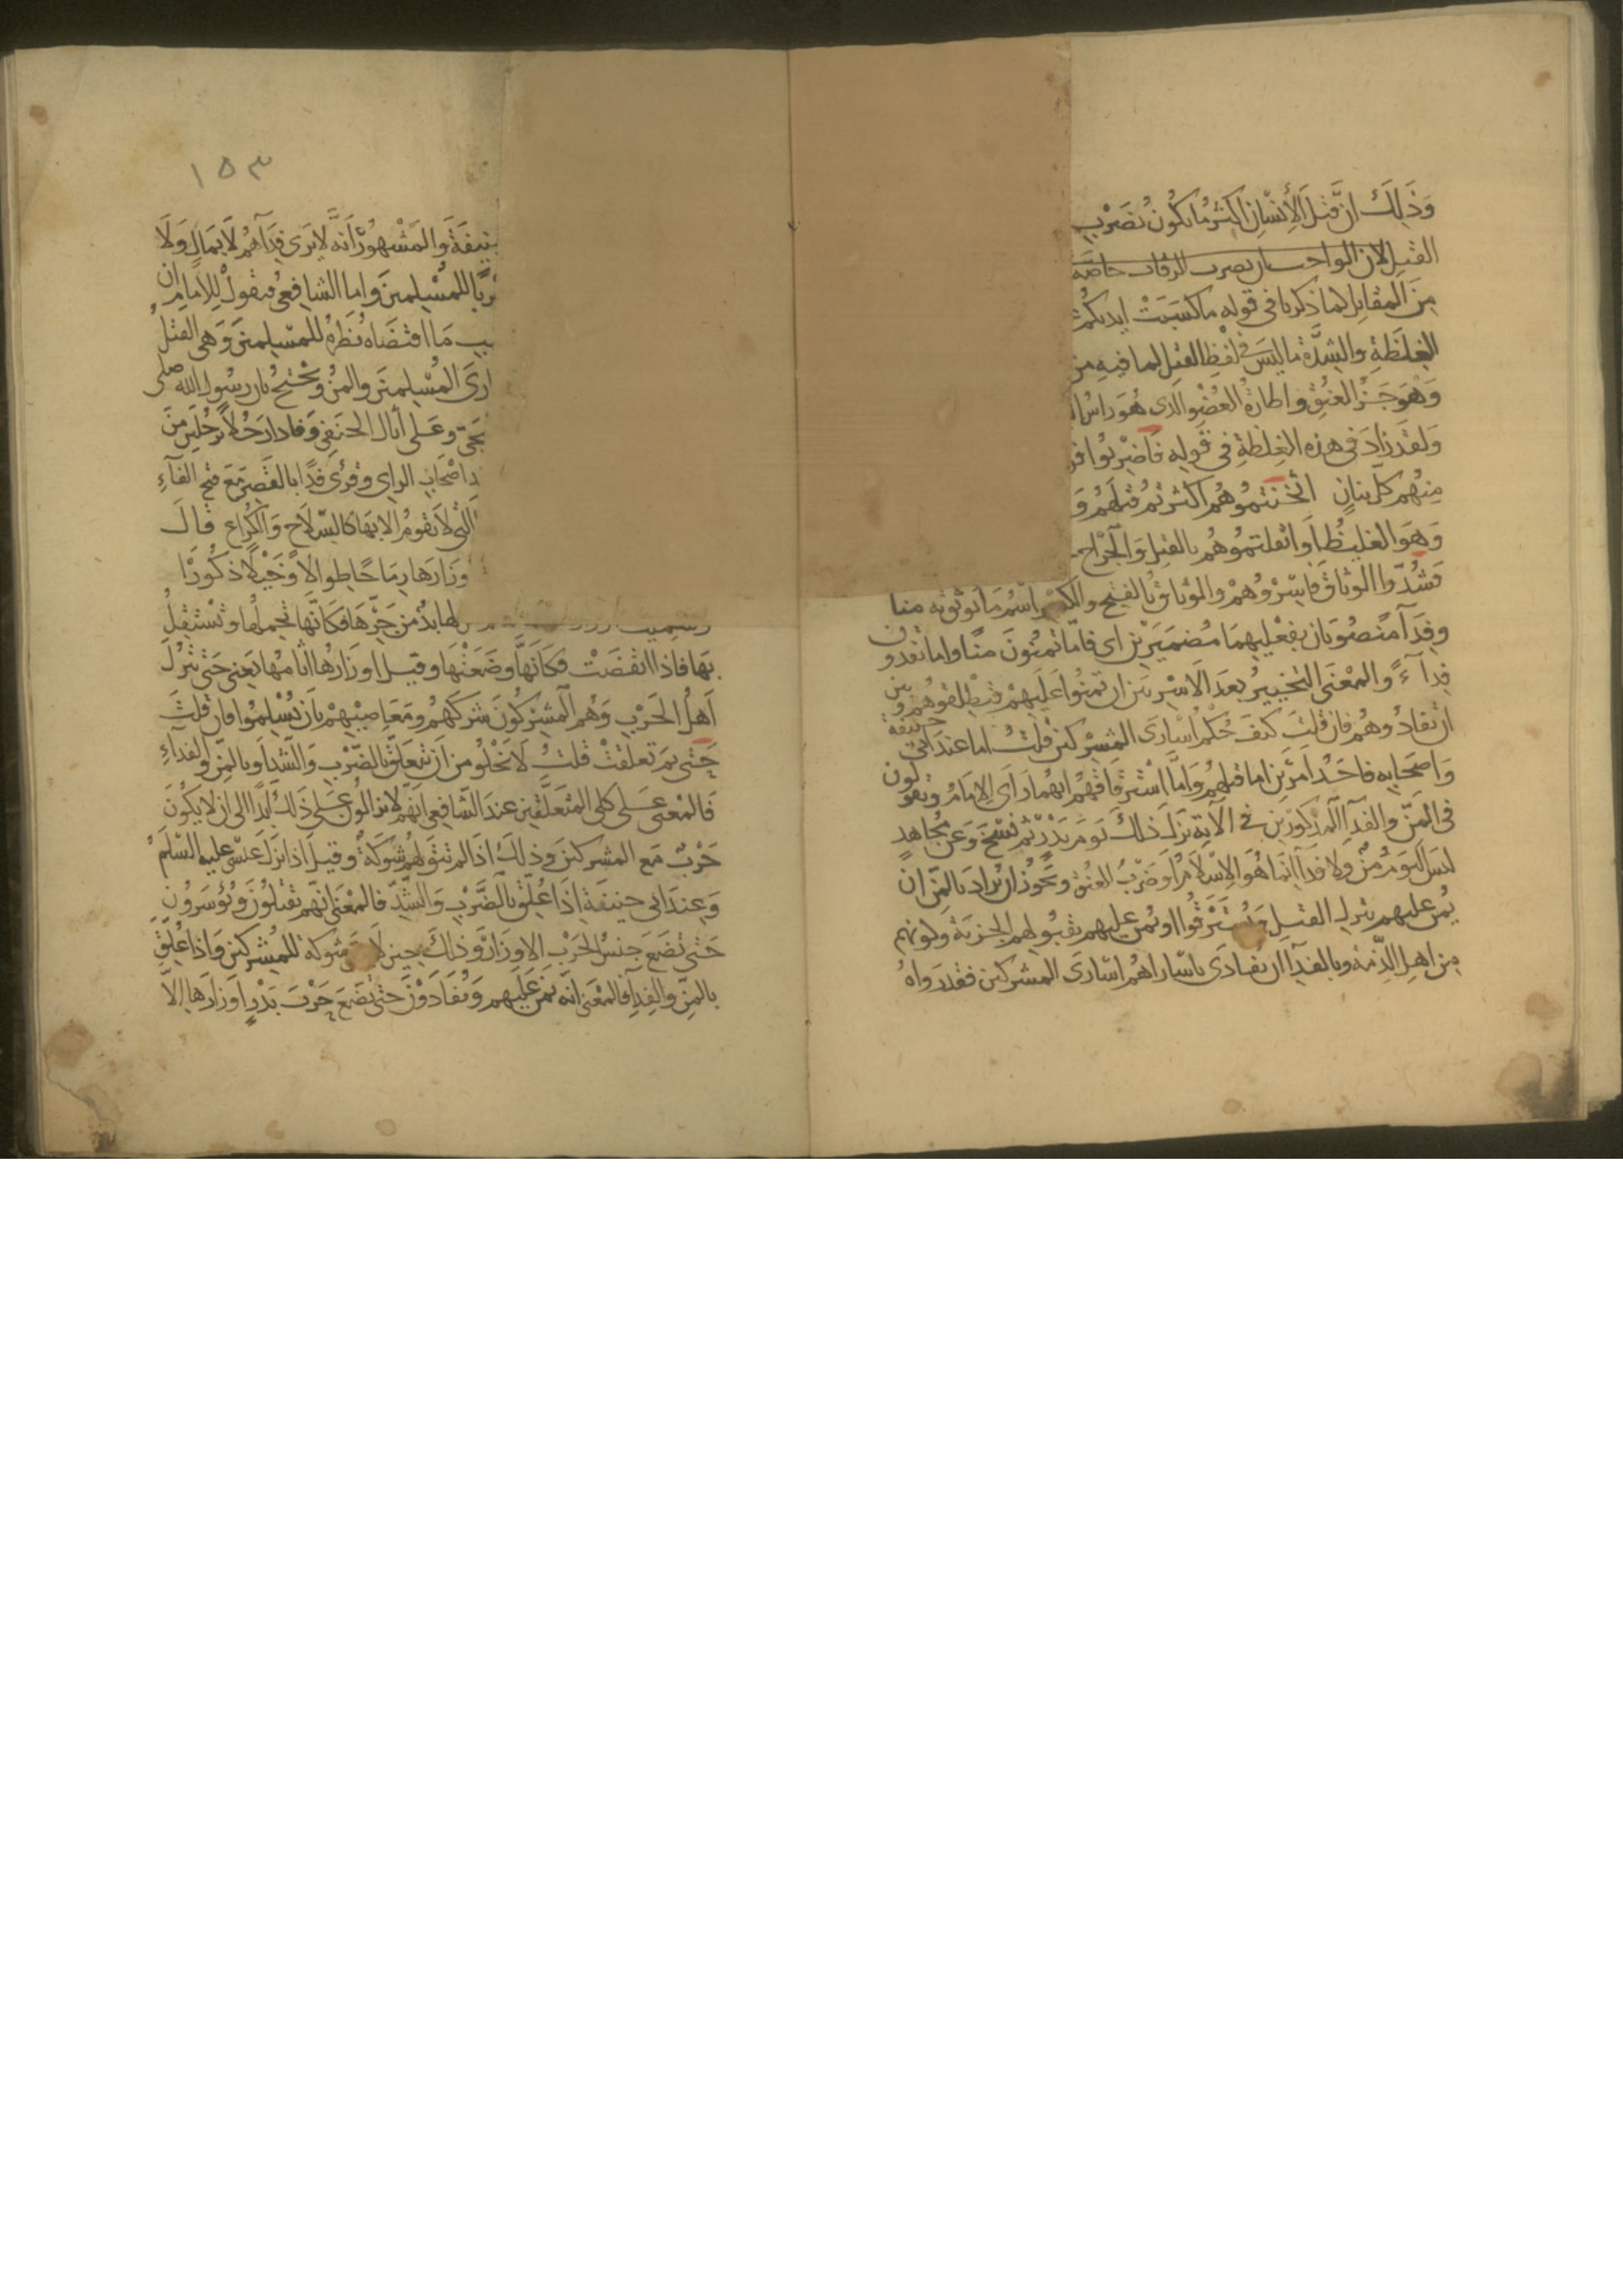 وَذَلِكَ ان قتلَ الأنسان اكثر ما يكون بضرب
القتل لان الواجب ان يضرب الرقاب خاصة
من المقاتل كما ذكرنا في قوله ما كسبت ايديكم
الغلظة والشدّة ما ليس في لفظ القتل لما فيه من
وَهوَ جَزُّ العنُق واطارة العُضْو الذى هُوَ راسُ
وَلقد زادَ فى هذه الغِلظَةِ فى قوله فاضربُوا فو
منهُم كلّ بنانٍ اثخنتموُهُم اكثرتم قتلَهُم وَ
وَهوَ الغليظُ اوَ اثقلتموُهُم بالقتلِ وَالجَرَاح
فَشُدّوا الوَثاقَ فاسِرُوهُمْ والوَثاقُ بالفتح والكسر اسْم مَا يوثق به منا
وفدَآ منصُوبَان بفعْليهِمَا مُضمَرَيْن اى فامّا تمنُّونَ منًّا واما تفدون
فدآءً والمعْنَى التخييرُ بعدَ الاسْر بَين ان تمنُّوا عَلَيهِمْ فتطلقوهُم وبين
ان تفادُوهُم فان قلتَ كيفَ حُكم اُسَارَى المشركين قلتُ اما عند ابى حنيفة
وَاصحَابه فاحَدُ امرَين اما قتلهُم وَامَّا اسْترقاقهُم ايهُمَا رَأى الامَامُ ويقولون
فى المَنّ والفدآ المذكورَين فى الآية نزلَ ذلكَ يَومَ بَدرٍ ثم نسخ وَعَن مجُاهدٍ
ليسَ اليَومَ مَنّ ولا فدآ انّما هُوَ الاسْلامُ اوْ ضربُ العنُق ويَجوزُ ان يُرادَ بالمَنّ ان
يُمنّ عليهم بترك القتل ويُسْتَرَقُّوا او يُمن عليهم بقبُولهم الجزيَة وكونهم
من اهل الذّمة وبالفدَآ ان يفادَى باسَاراهُم اسَارَى المشركين فقد رَواهُ
١٥٣
نيفَةَ وَالمَشْهوُرُ أنه لا يَرَى فِدَآهُم لا بمَالٍ وَلَا
للمُسْلِمينَ واما الشافعىُّ فيقولُ للامَامِ ان
مَا اقتضَاهُ نَظرُه للمسْلِمينَ وَهى القتلُ
ارَى المُسْلِمينَ والمنُّ وَيَحْتجُّ بان رسُول الله صلى
وعَلى اثال الحَنفى وَفادا رَجُلاً برَجُلَين منَ
اصْحَابِ الراى وقرئَ فدًا بالقصْر مَعَ فتح الفآءِ
التى لا تقومُ الا بهَا كالسّلاَح وَالكُراعِ قالَ
وزارَهَا رِمَاحًا طوالاً وَخَيْلاً ذكُورًا
لها بدٌّ من جَرّهَا فكانّها تحملُها وَتسْتقِلُّ
بهَا فاذا انقضَتْ فكَانَّها وضَعَتْهَا وقيل اوزَارُها اثامُها يَعنى حَتى يَترُكَ
اَهلُ الحَرْبِ وَهُم المشِركُونَ شَركَهُم ومَعَاصيَهُمْ بَان يُسْلِمُوا فان قلتَ
حَتى بِمَ تعلقتْ قلتُ لاَ يَخْلُو من اَن تَتعَلّقَ بالضَرْبِ وَالشَد اَو بالمَنِّ والفدآءِ
فالمعنى عَلى كلى المتعَلّقين عندَ الشَافعى انّهم لا يزالُونَ عَلى ذلكَ اَبدًا الى ان لا يكُونَ
حَرْبٌ مَع المشركينَ وَذلكَ اذا لم تبقَ لهُم شوكَةٌ وقيلَ اذا نزَلَ عيسَى عليه السّلَمُ
وَعندَ ابى حنيفَة اِذا عُلّقَ بالضَّرْبِ وَالشَّدِّ فالمعْنى انّهم يقتلُونَ وَيُؤسَرونَ
حَتى تضَعَ جنسُ الحَرْبِ الاوزَارَ وَذلكَ حين لا شوكة للمُشركينَ وَاذا عُلّقَ
بالمنّ والفِدآءِ فالمعنى انّه يُمنّ عَلَيهم وَيُفادَوْنَ حَتى تضَعَ حَرْبَ بَدْرٍ اوزارَها الاّ